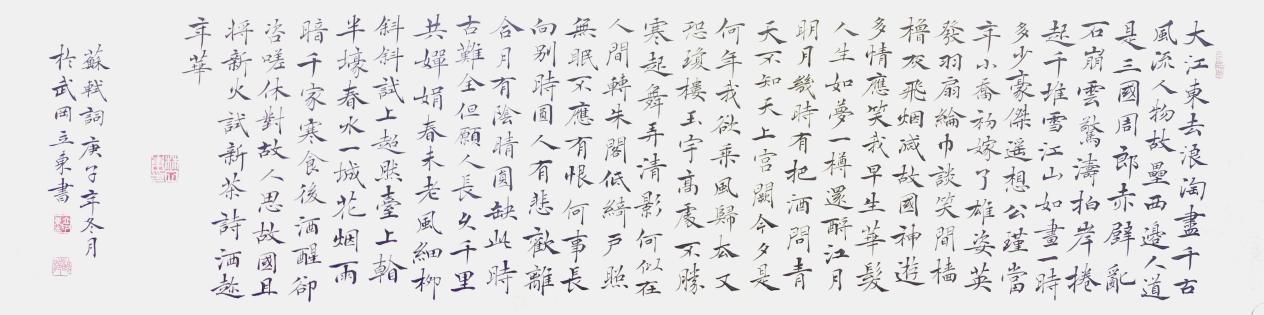 大江東去浪淘盡千古
風流人物故壘西邊人道
是三國周郎赤壁亂
石崩雲驚濤拍岸捲
起千堆雪江山如畫一時
多少豪傑遙想公瑾當
年小喬初嫁了雄姿英
發羽扇綸巾談笑間檣
櫓灰飛烟滅故國神遊
多情應笑我早生華髮
人生如夢一樽還酹江月
明月幾時有把酒問青
天不知天上宮闕今夕是
何年我欲乘風歸去又
恐瓊樓玉宇高處不勝
寒起舞弄清影何似在
人間轉朱閣低綺戶照
無眠不應有恨何事長
向別時圓人有悲歡離
合月有陰晴圓缺此時
古難全但願人長久千里
共嬋娟春未老風細柳
斜斜試上超然臺上看
半壕春水一城花烟雨
暗千家寒食後酒醒卻
咨嗟休對故人思故國且
將新火試新茶詩酒趁
年華
蘇軾詞庚子年冬月
於武岡立東書